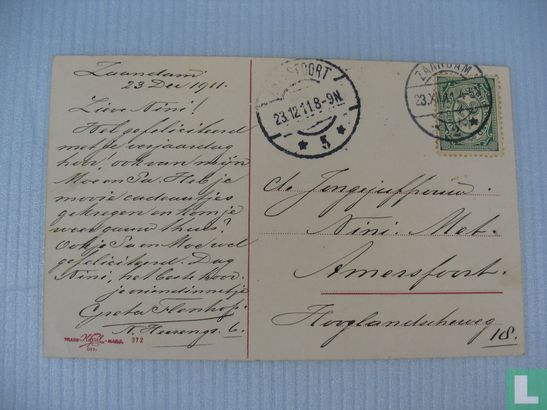 Zaandam
23 Dec 1911.
Lieve Nini!
Wel gefeliciteerd
met je verjaardag
hoor, ook van mijn
Moe en Pa. Heb je
mooie cadeautjes
gekregen en kom je
weer gauw thuis?
Ook je Pa en Moe wel
gefeliciteerd. Dag
Nini, het beste hoor.
je vriendinnetje
Greta
TRADE MARK 372
FOORT
23.12.11.8-9N
5
ZAANDAM
23.XII
2
de Jongejuffrouw.
Nini. Met.
Amersfoort.
Hooglandscheweg
18.
catawiki